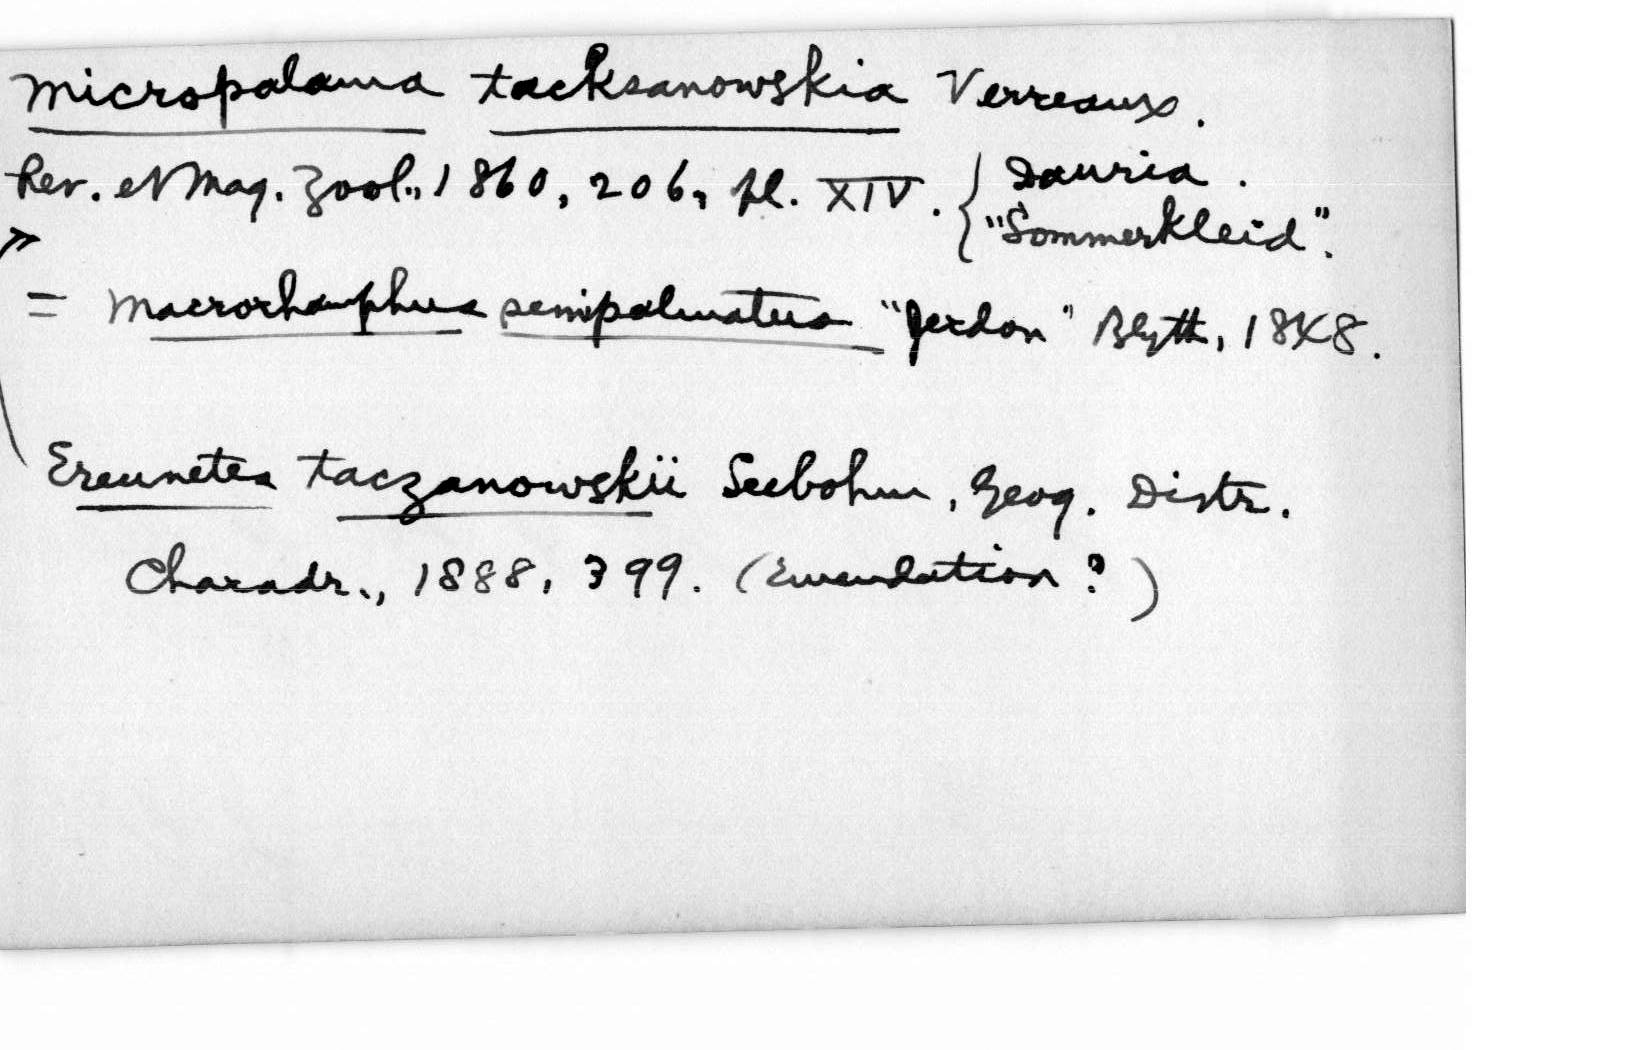 Micropalama tacksanowskia Verreaux.
Rev. et Mag. Zool., 1860, 206, pl. XIV. { Dauria.
"Sommerkleid".
= Macrorhamphus semipalmatus "Jerdon" Blyth, 1848.
Ereunetes taczanowskii Seebohm, Geog. Distr.
Charadr., 1888, 399. (Emendation?)